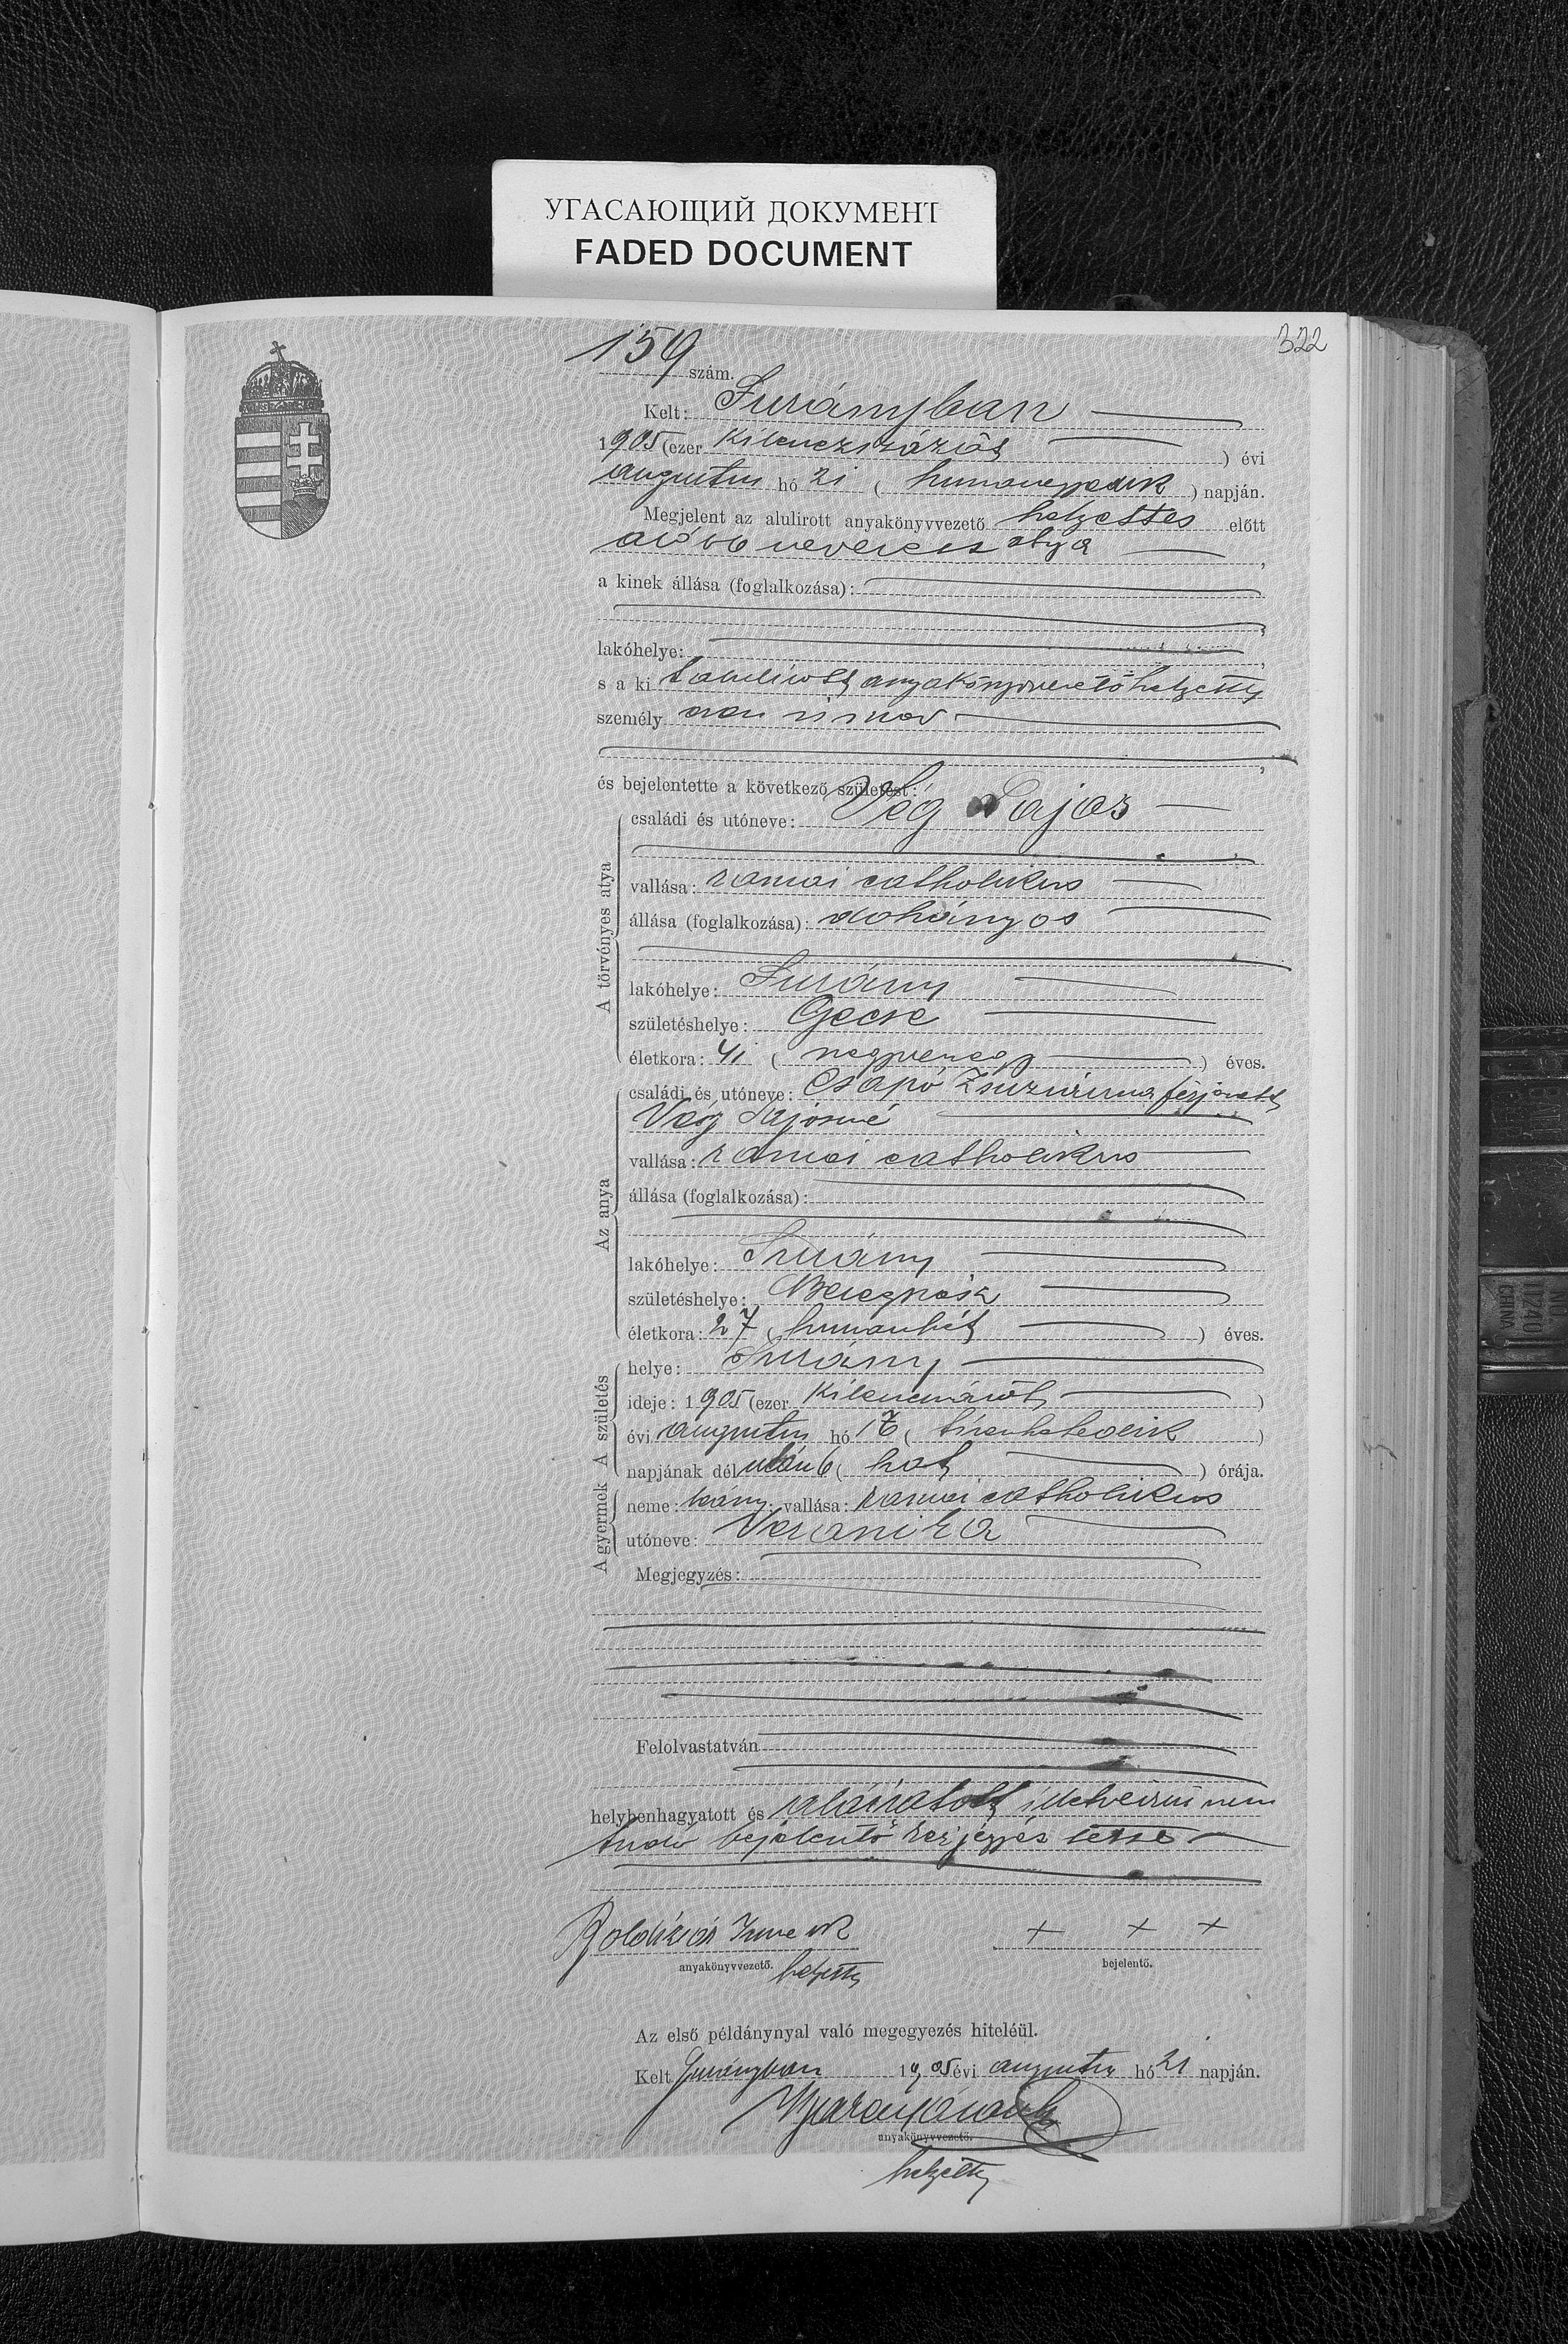 УГАСАЮЩИЙ ДОКУМЕНТ
FADED DOCUMENT
322
159 szám.
Kelt: Surányban
1905 (ezer kilenczszázöt ) évi
augusztus hó 21 ( huszonegyedik ) napján.
Megjelent az alulirott anyakönyvvezető helyettes előtt
alább nevezett atya ,
a kinek állása (foglalkozása):
lakóhelye: ,
s a ki anyakönyvvezető helyettes
személy ismer
és bejelentette a következő születést:
A törvényes atya
családi és utóneve: Vég Lajos
vallása: romai catholikus
állása (foglalkozása): dohányos
lakóhelye: Surány
születéshelye: Gecse
életkora: 41 ( negyvenegy ) éves.
Az anya
családi és utóneve: Csapó Zsuzsánna férjezett
Vég Lajosné
vallása: romai catholikus
állása (foglalkozása):
lakóhelye: Surány
születéshelye:
életkora: 27 ( huszonhét ) éves.
A születés
helye: Surány
ideje: 1905 (ezer kilenczszázöt )
évi augusztus hó 17 ( tizenhetedik )
napjának dél után 6 ( hat ) órája.
A gyermek
neme: leány; vallása: romai catholikus
utóneve: Veronika
Megjegyzés:
Felolvastatván
helybenhagyatott és aláíratott, illetve írni nem
tudó bejelentő kézjegyés
Boldizsár Imre
anyakönyvvezető. helyettes
+ + +
bejelentő.
Az első példánynyal való megegyezés hiteléül.
Kelt Surányban 1905 évi augusztus hó 21 napján.
anyakönyvvezető.
helyettes